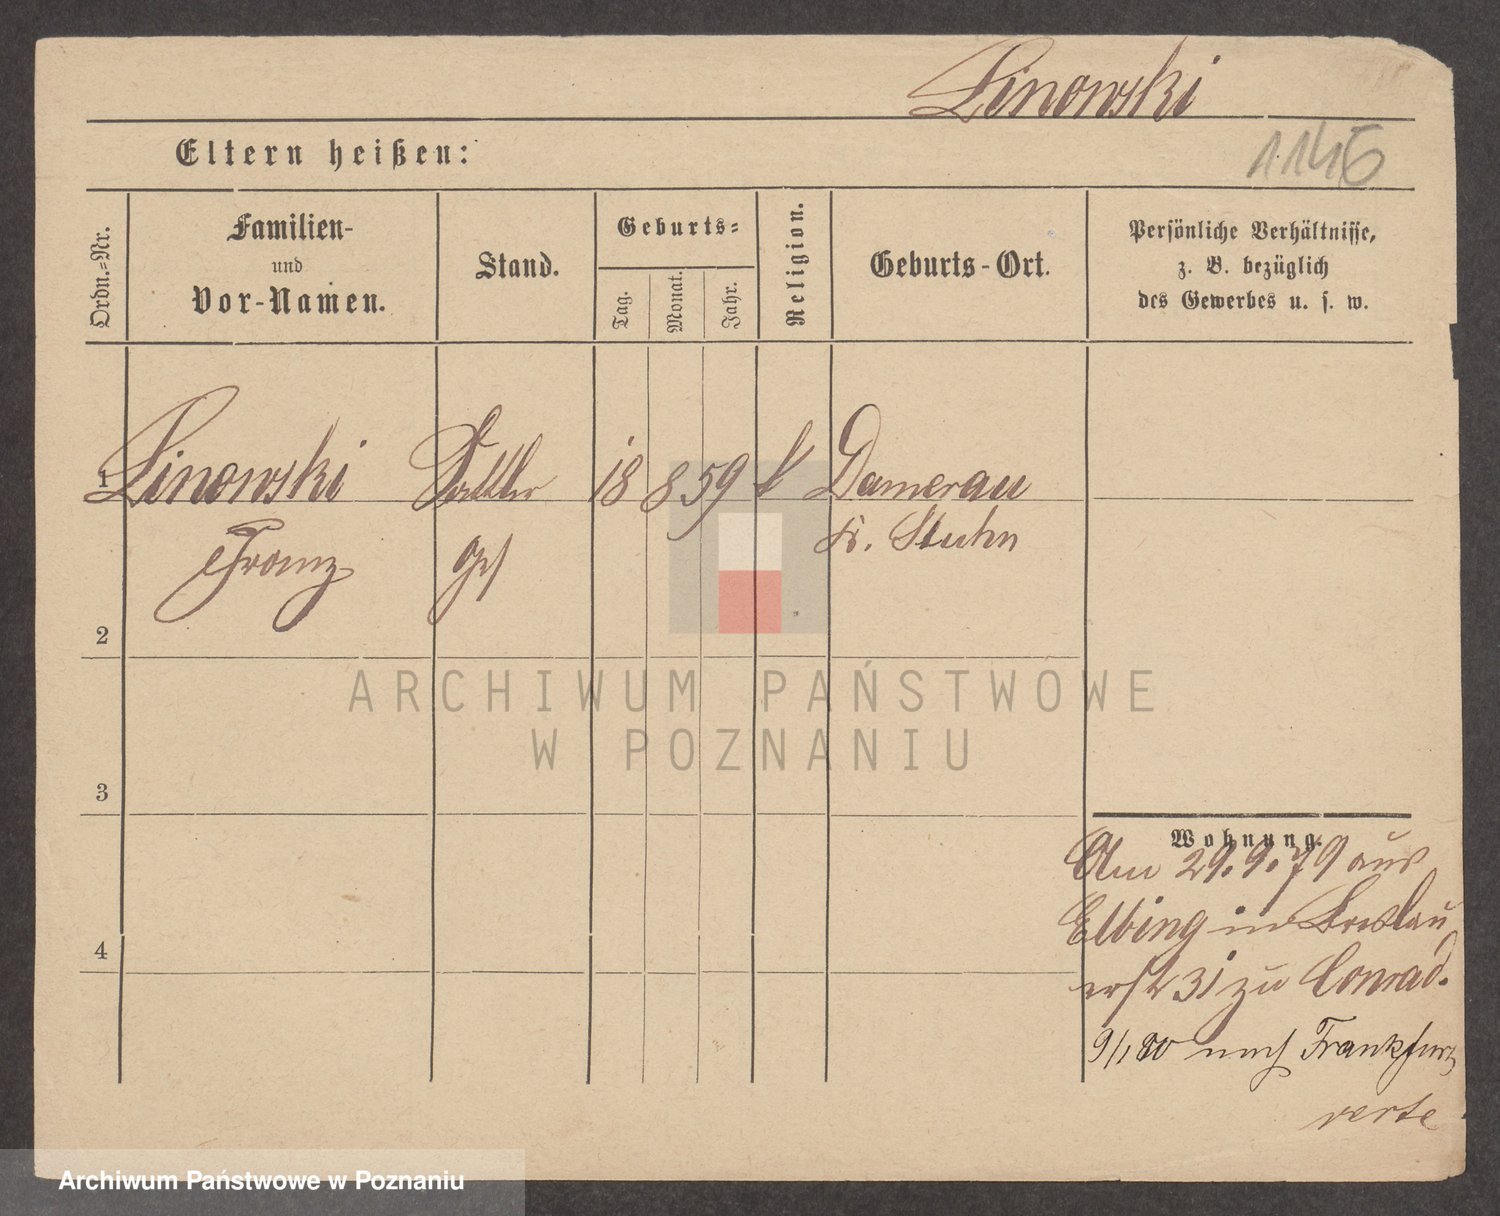 Linowski
Eltern heißen:
1146
Ordn.-Nr.
Familien-
und
Vor-Namen.
Stand.
Geburts-
Tag.
Monat.
Jahr.
Religion.
Geburts-Ort.
Persönliche Verhältnisse,
z. B. bezüglich
des Gewerbes u. s. w.
1 Linowski Sattler 18 8 59 k Damerau
Franz Ges Kr. Stuhm
2
ARCHIWUM PAŃSTWOWE
W POZNANIU
3
Wohnung.
Am 29.9.79 aus
Elbing in Breslau
31 zu Conrad.
4
9/1 80 nach Frankfurt
verte
Archiwum Państwowe w Poznaniu